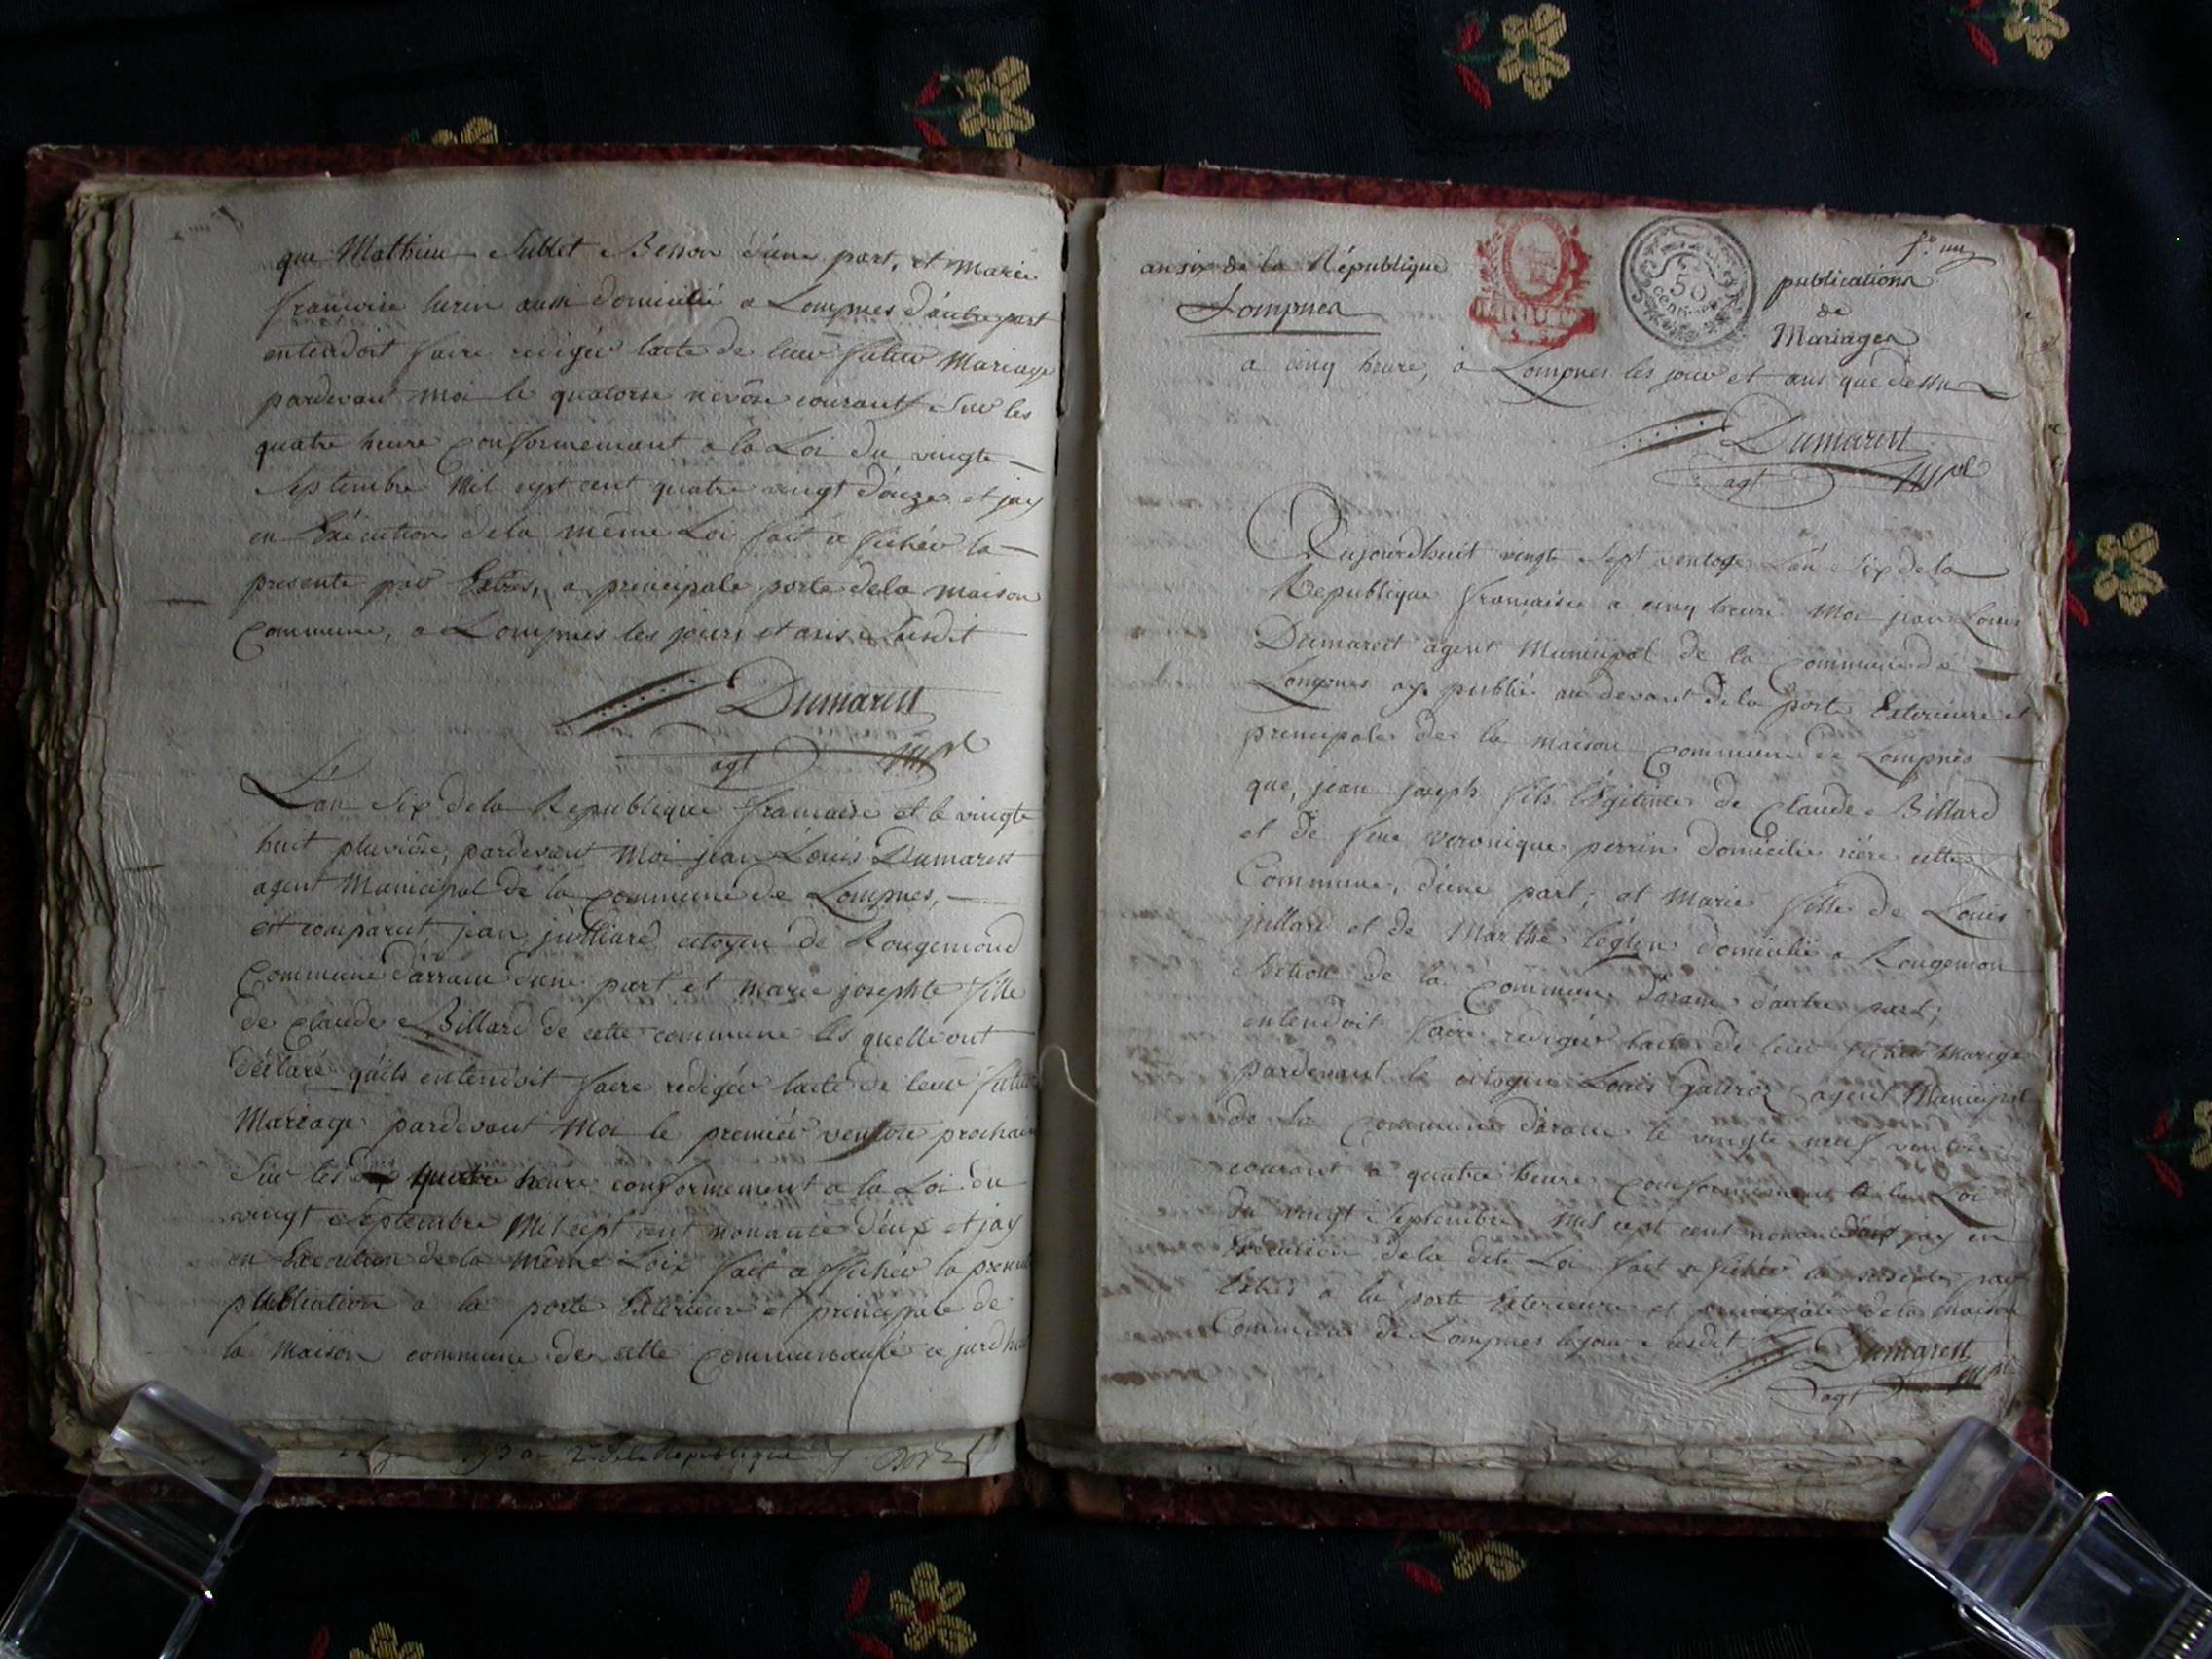 que Mathieu Sublet Besson d'une part, et marie
françoise lurin aussi domicilié a Lompnes d'autre part
entendoit faire rediger lacte de leur futur Mariage
pardevant moi le quatorse nivôse courant sur les
quatre heure conformemant a la Loi du vingte
Septembre Mil cept cent quatre vingt douze et jay
en Exécution de la même Loi fait a ficher la
presente par Extres, a principale porte dela maison
Commune, a Lompnes les jours et ans susdit
Dumarest
agt mpl
L'an Six de la Republique francaise et le vingte
huit pluviôse, pardevant Moi jean Louis Dumarest
agent Municipal de la commune de Lompnes,
est comparut jean julliard citoyen de Rougemond
Commune d'arrane d'une part et marie josephte fille
de Claude Billard de cette commune les quelle ont
déclaré qu'ils entendoit faire rediger lacte de leur futur
Mariage pardevant Moi le premier ventose prochain
Sur les quatre heure conformement a la Loi du
vingt Septembre Mil cept cent nonante deux et jay
en Execution de la même Loix fait afficher la
publication a la porte Exterieure et principale de
la Maison commune de cette communauté
2e de la Republique
f.o
an six de la République
publications
Lompnes
de
Mariages
50 centimes
a cinq heure, a Lompnes les jour et ans que dessu
Dumarest
agt mpl
Aujourdhuit vingte Sept ventose L'an Six de la
Republique francaise a cinq heure Moi jean Louis
Dumarest agent Municipal de la Commune de
Lompnes ay publié au devant de la porte Exterieure et
principale de la maison Commune de Lompnes
que, jean joseph fils légitime de Claude Billard
et de feue veronique perrin domicilie rière cette
Commune, d'une part; et Marie fille de Louis
jullard et de Marthe domicilié a Rougemon
Section de la Commune d'arane d'autre part;
entendoit faire rediger lacte de leur futur Mariage
pardevant le citoyen Louis agent Municipal
de la Commune d'arane le vingte neuf ventose
courant a quatre heure conformement a la Loi
du vingt Septembre Mil cept cent nonante deux jay en
Exécution de la dite Loi fait a ficher la susdite par
Extres a la porte Exterieure et principale de la maison
Commune de Lompnes le jour susdit
Dumarest
agt mpl